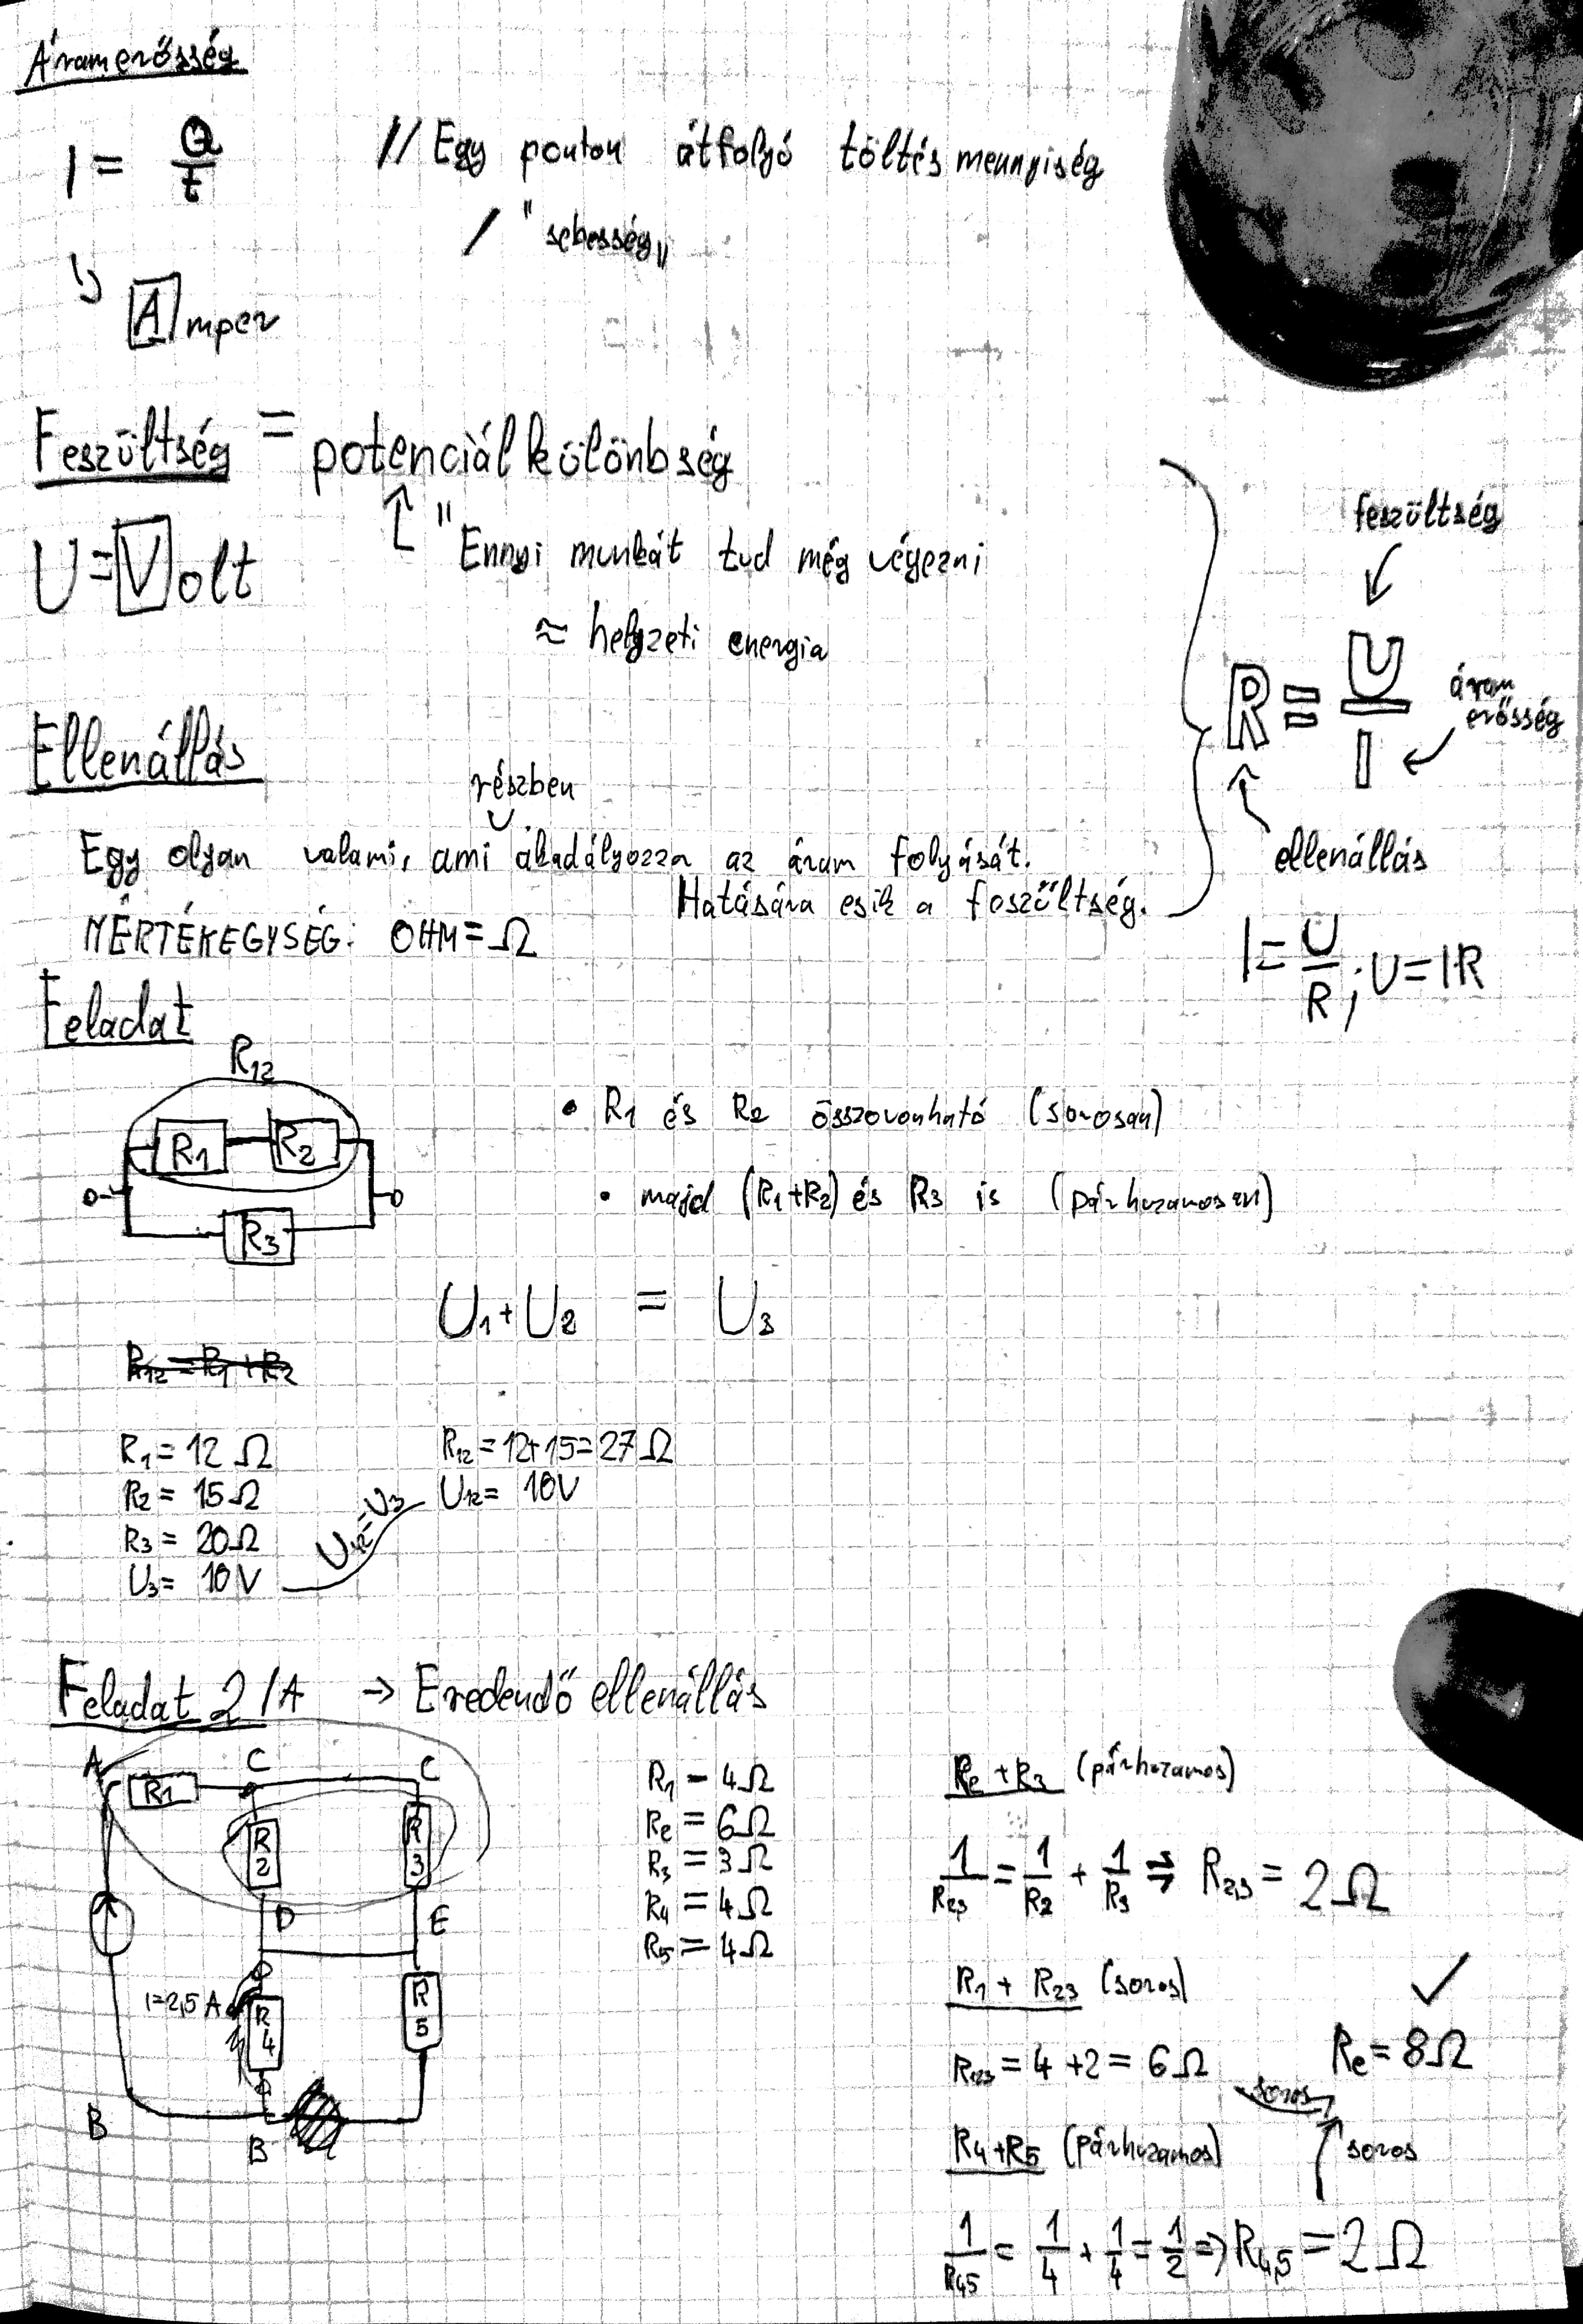 Áramerősség
I = Q/t // Egy ponton átfolyó töltés mennyiség
/ "sebesség"
↳ Amper
Feszültség = potenciál különbség
U = Volt
↑ "Ennyi munkát tud még végezni
≈ helyzeti energia
feszültség
R = U/I
áram erősség
ellenállás
I = U/R ; U = IR
Ellenállás
részben
Egy olyan valami, ami akadályozza az áram folyását.
Hatására esik a feszültség.
MÉRTÉKEGYSÉG: OHM = Ω
Feladat
R12
R1 R2
R3
• R1 és R2 összevonható (sorosan)
• majd (R1+R2) és R3 is (párhuzamosan)
U1 + U2 = U3
R12 = R1 + R2
R1 = 12 Ω
R2 = 15 Ω
R3 = 20 Ω
U3 = 10 V
U12 = U3
R12 = 12+15 = 27 Ω
U12 = 10V
Feladat 2/A → Eredendő ellenállás
A C C
R1
R2 R3
D E
I=2,5 A
R4 R5
B B
R1 = 4 Ω
R2 = 6 Ω
R3 = 3 Ω
R4 = 4 Ω
R5 = 4 Ω
R2 + R3 (párhuzamos)
1/R2,3 = 1/R2 + 1/R3 ⇒ R2,3 = 2 Ω
R1 + R23 (soros)
R123 = 4 + 2 = 6 Ω
soros
✓
Re = 8 Ω
R4+R5 (párhuzamos)
soros
1/R45 = 1/4 + 1/4 = 1/2 ⇒ R4,5 = 2 Ω